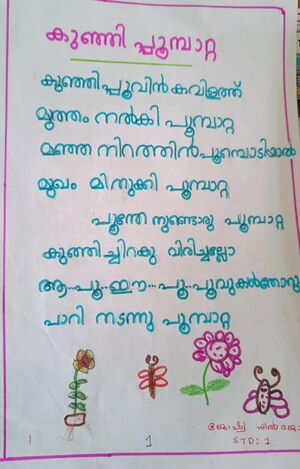 കുഞ്ഞി പ്പൂമ്പാറ്റ
കുഞ്ഞിപ്പൂവിൻ കവിളത്ത്
മുത്തം നൽകി പൂമ്പാറ്റ
മഞ്ഞ നിറത്തിൻ പൂമ്പൊടിയാൽ
മുഖം മിനുക്കി പൂമ്പാറ്റ
പൂന്തേ നുണ്ടൊരു പൂമ്പാറ്റ
കുഞ്ഞിച്ചിറകു വിരിച്ചല്ലോ
ആ..പൂ..ഈ..പൂ..പൂവുകൾതോറു
പാറി നടന്നു പൂമ്പാറ്റ
എൻ
STD: 1
1